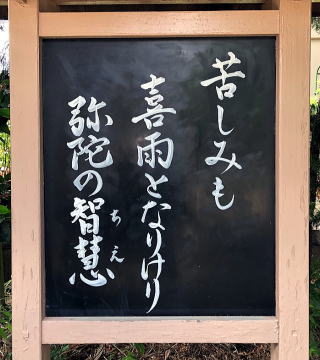 苦しみも
喜雨となりけり
弥陀の智慧
ちえ